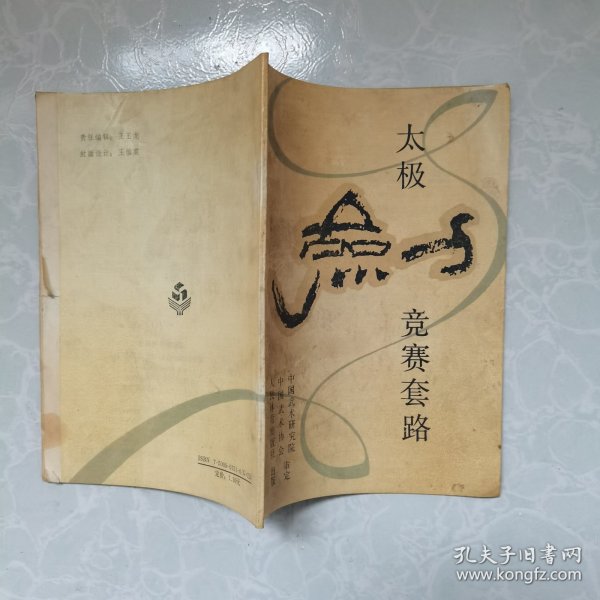 太极
剑
竞赛套路
中国武术研究院 审定
中国武术协会
人民体育出版社 出版
责任编辑：王玉龙
ISBN 7-5009-
定价：1.
孔夫子旧书网
www.kongfz.com